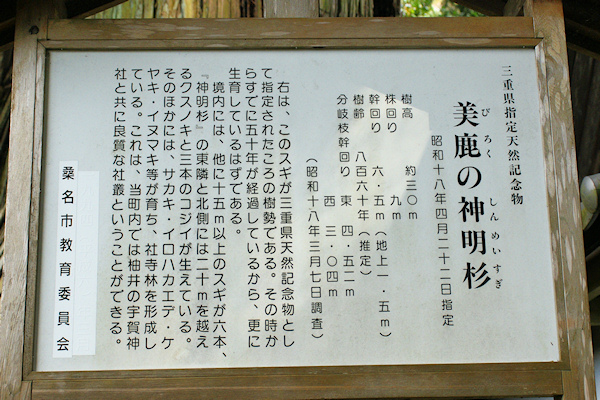 三重県指定天然記念物
びろく しんめいすぎ
美鹿の神明杉
昭和十八年四月二十二日指定
樹高 約三〇m
株回り 九m
幹回り 六・五m(地上一・五m)
樹齢 八百六十年(推定)
分岐枝幹回り 東 四・五二m
西 三・〇四m
(昭和十八年三月七日調査)
右は、このスギが三重県天然記念物とし
て指定されたころの樹勢である。その時か
らすでに五十年が経過しているから、更に
生育しているはずである。
境内には、他に十五m以上のスギが六本、
『神明杉』の東隣と北側には二十mを越え
るクスノキと三本のコジイが生えている。
そのほかには、サカキ・イロハカエデ・ケ
ヤキ・イヌマキ等が育ち、社寺林を形成し
ている。これは、当町内では柚井の宇賀神
社と共に良質な社叢ということができる。
桑名市教育委員会